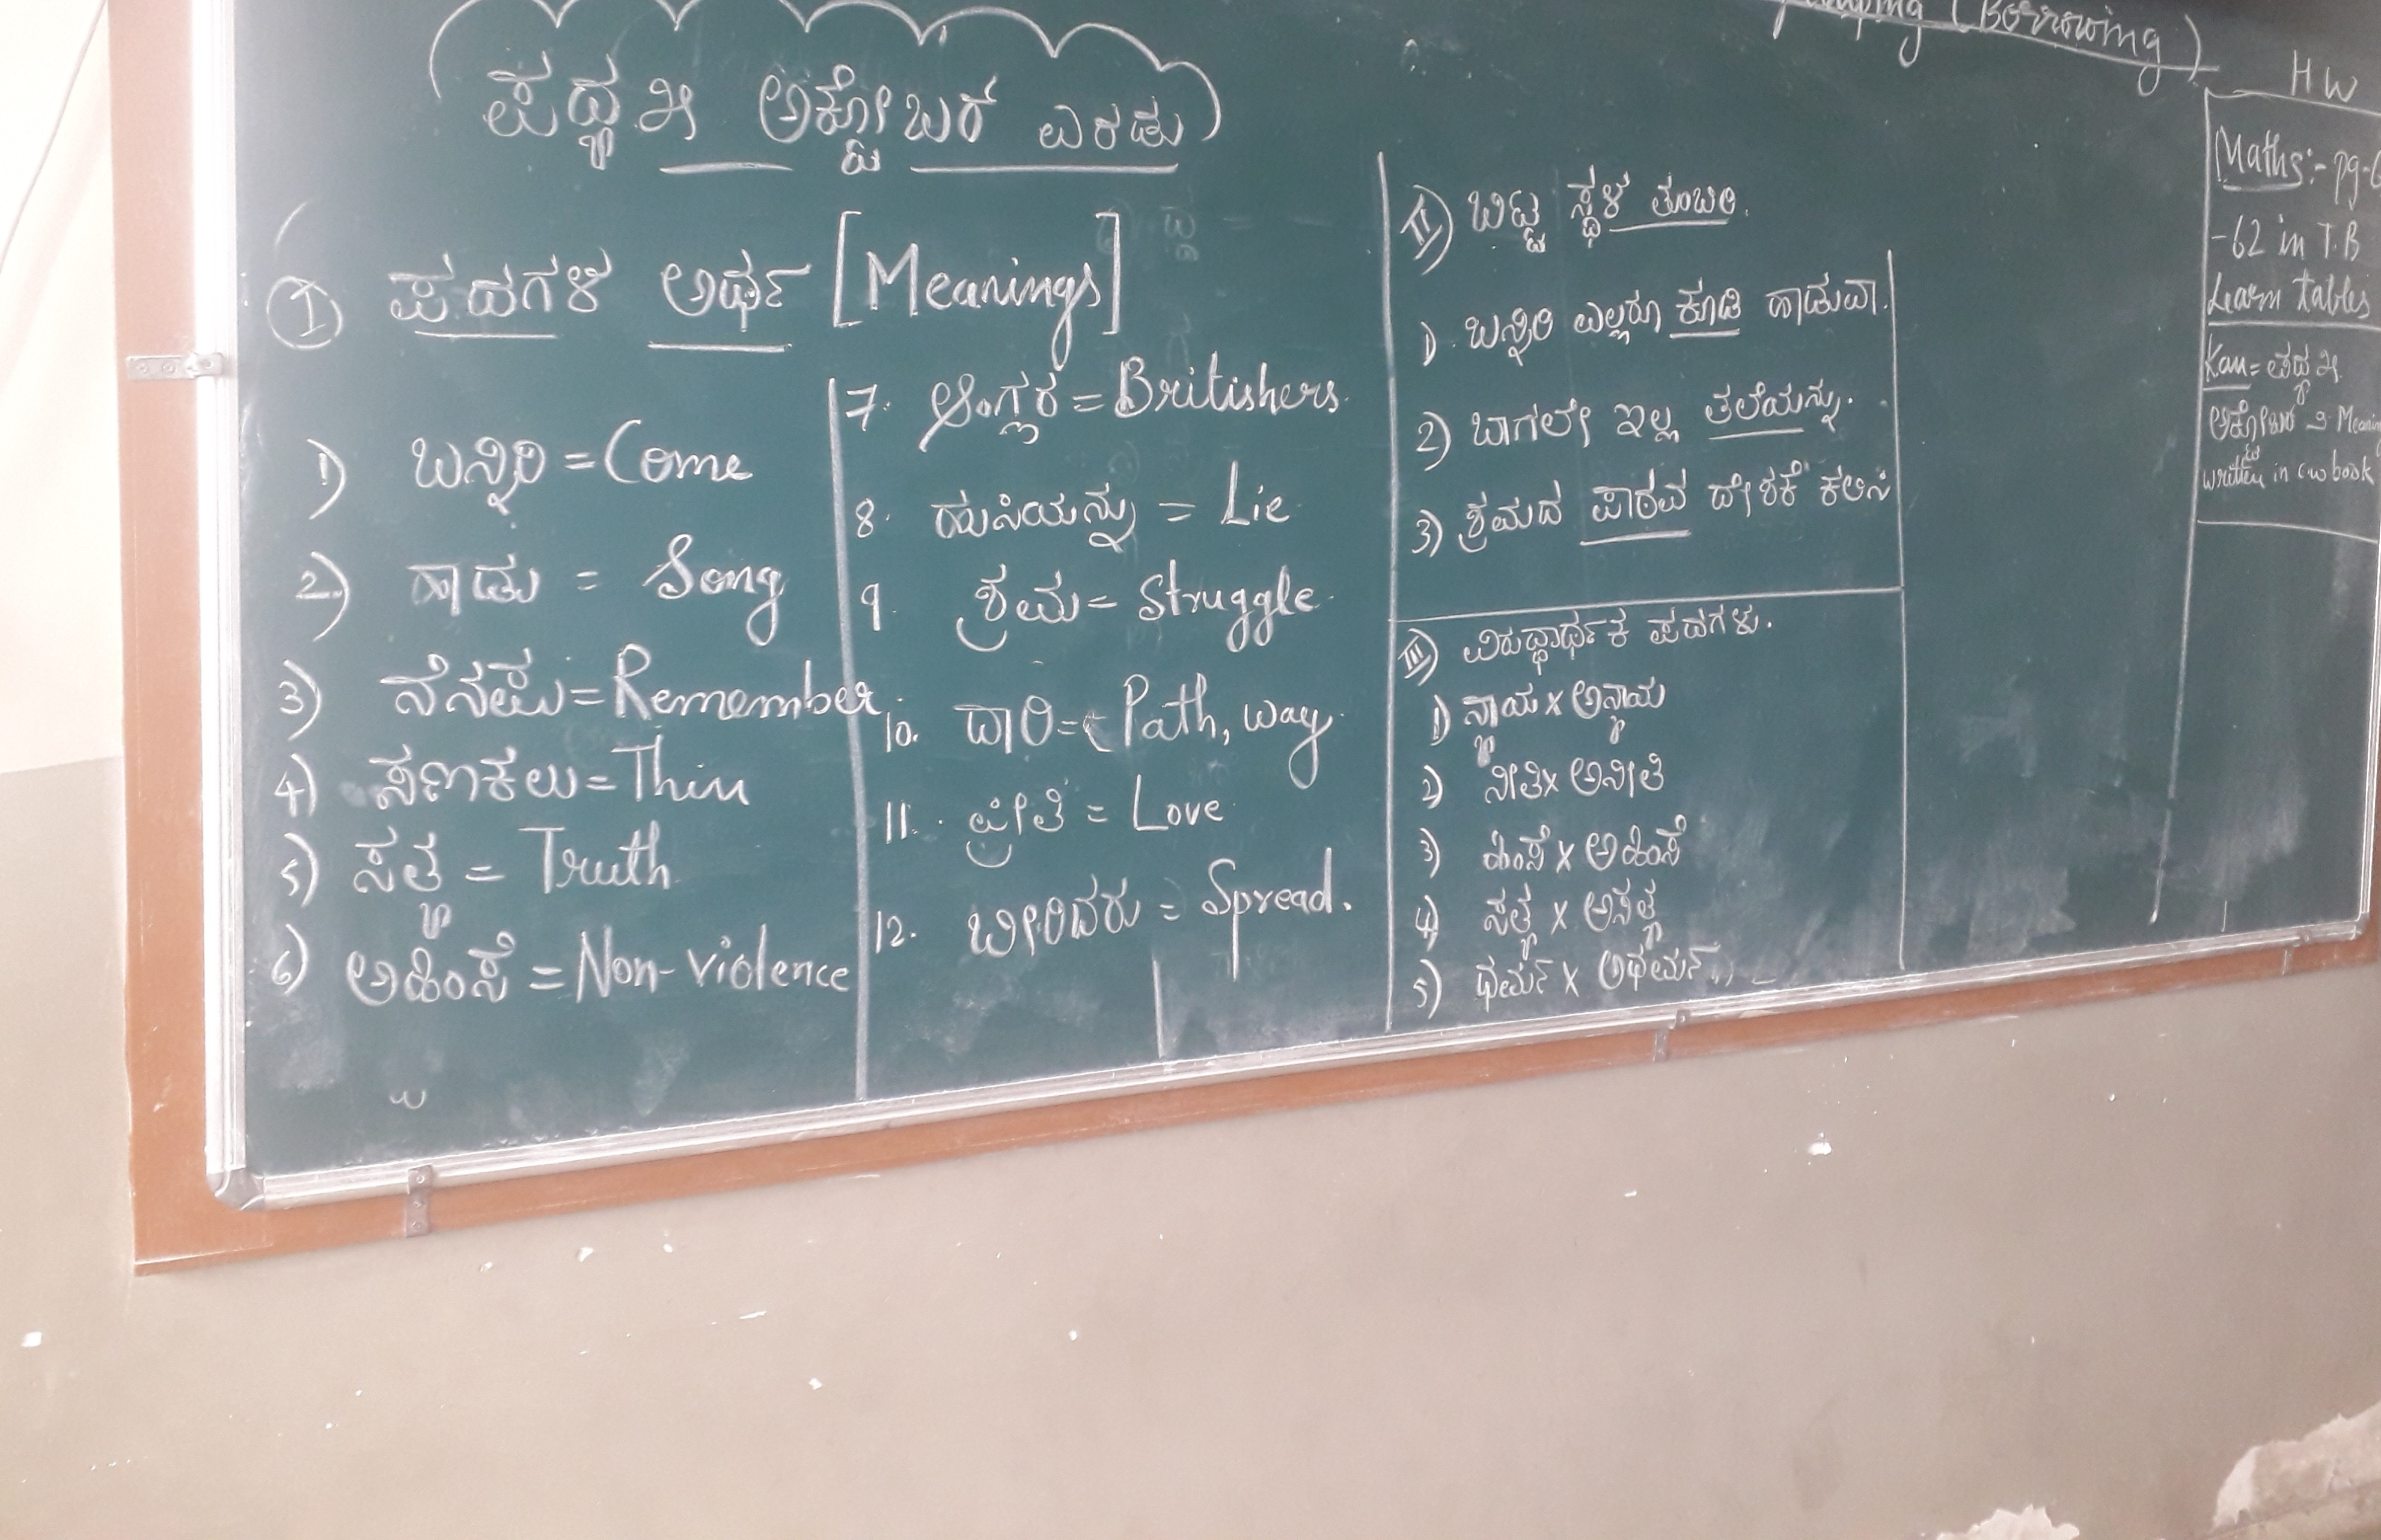 ಪದ್ಯ ೫ ಅಕ್ಟೋಬರ್ ಎರಡು
I ಪದಗಳ ಅರ್ಥ [Meanings]
1) ಬನ್ನಿರಿ = Come
2) ಹಾಡು = Song
3) ನೆನಪು = Remember
4) ಸಣಕಲು = Thin
5) ಸತ್ಯ = Truth
6) ಅಹಿಂಸೆ = Non-violence
7. ಆಂಗ್ಲರ = Britishers.
8. ಹುಸಿಯನ್ನು = Lie
9. ಶ್ರಮ = Struggle.
10. ದಾರಿ = Path, way.
11. ಪ್ರೀತಿ = Love
12. ಬೀರಿದರು = Spread.
II) ಬಿಟ್ಟ ಸ್ಥಳ ತುಂಬಿರಿ.
1) ಬನ್ನಿರಿ ಎಲ್ಲರೂ ಕೂಡಿ ಹಾಡುವಾ.
2) ಬಾಗಲೇ ಇಲ್ಲ ತಲೆಯನ್ನು.
3) ಶ್ರಮದ ಪಾಠವ ದೇಶಕೆ ಕಲಿಸಿ
III) ವಿರುದ್ಧಾರ್ಥಕ ಪದಗಳು.
1) ನ್ಯಾಯ x ಅನ್ಯಾಯ
2) ನೀತಿ x ಅನೀತಿ
3) ಹಿಂಸೆ x ಅಹಿಂಸೆ
4) ಸತ್ಯ x ಅಸತ್ಯ
5) ಧರ್ಮ x ಅಧರ್ಮ
(Borrowing)
HW
Maths:- pg-6
-62 in T.B
Learn tables
Kan = ಪದ್ಯ ೫
Meanin
written in cw book